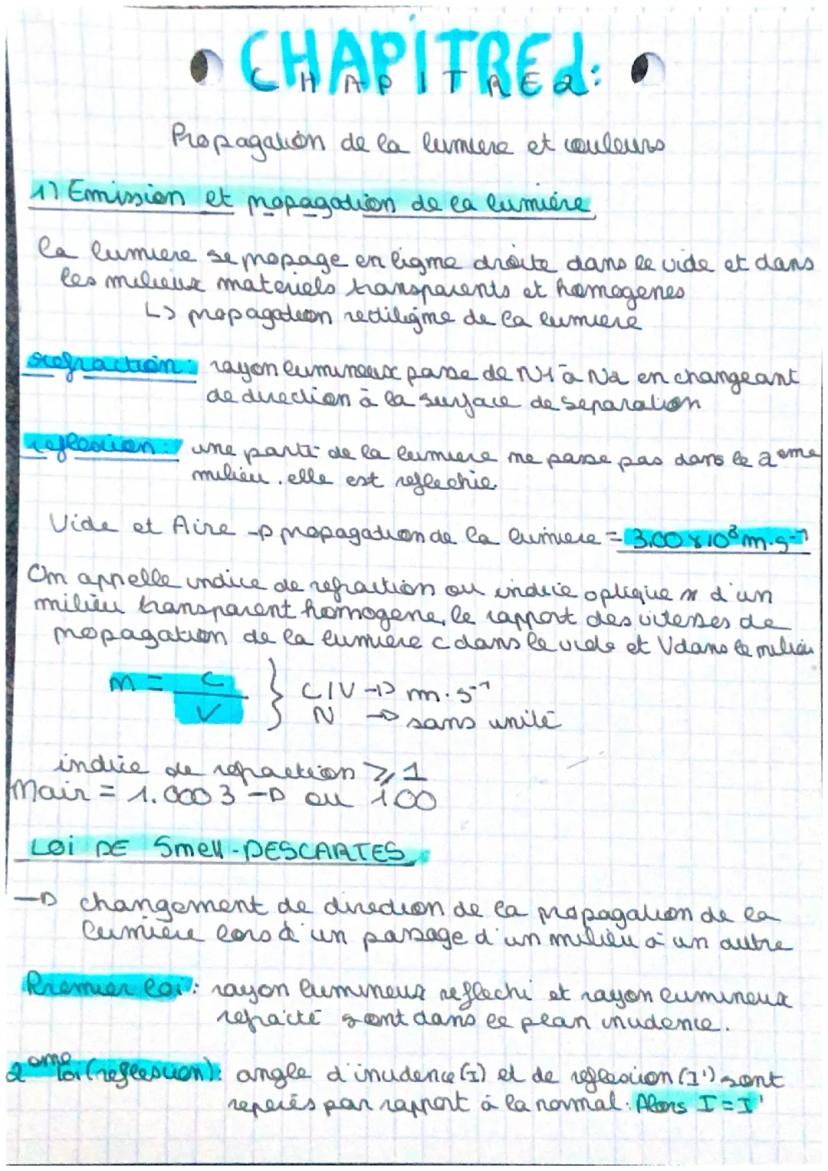 CHAPITRE 2:
CHAPITRE 2
Propagation de la lumiere et couleurs
1) Emission et propagation de la lumière
la lumiere se propage en ligne droite dans le vide et dans
les milieux materiels transparents et homogenes
↳ propagation rectiligne de la lumiere
refraction: rayon lumineux passe de N1 à N2 en changeant
de direction à la surface de separation
reflexion: une parti de la lumiere ne passe pas dans le 2eme
milieu. elle est reflechie
Vide et Aire → propagation de la lumiere = 3,00 x 10⁸ m.s⁻¹
On appelle indice de refraction ou indice optique n d'un
milieu transparent homogene, le rapport des vitesses de
propagation de la lumiere c dans le vide et V dans le milieu
n = C / V } C/V → m.s⁻¹
N → sans unité
indice de refraction ⩾ 1
nair = 1.0003 → ou 1.00
LOi DE Snell-DESCARTES
→ changement de direction de la propagation de la
lumière lors d'un passage d'un milieu à un autre
Premier loi: rayon lumineux reflechi et rayon lumineux
refracté sont dans le plan incidence.
2eme loi (reflexion): angle d'incidence (I) et de reflexion (I') sont
reperés par rapport à la normal. Alors I = I'